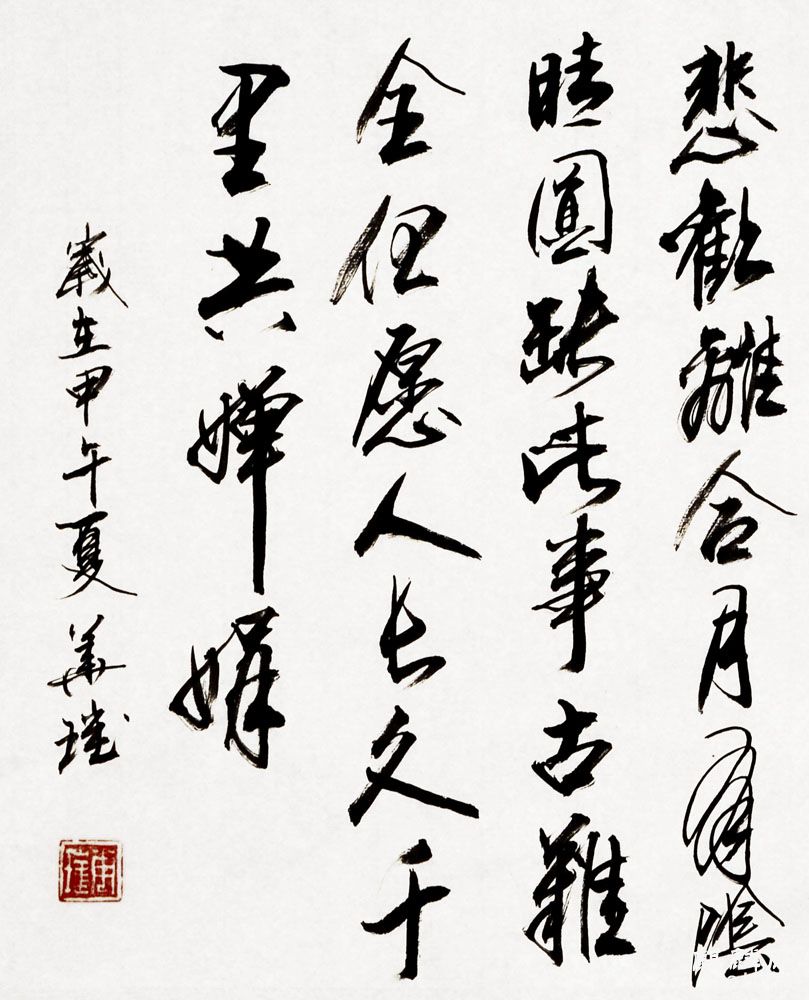 悲歡離合月有陰
晴圓缺此事古難
全但愿人长久千
里共嬋娟
歲在甲午夏華